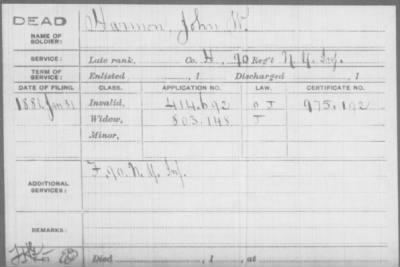 DEAD
NAME OF SOLDIER: Harmon, John W.
SERVICE: Late rank, Co. H, 90 Reg't N.Y. Inf.
TERM OF SERVICE: Enlisted , 1 Discharged , 1
DATE OF FILING. CLASS. APPLICATION NO. LAW. CERTIFICATE NO.
Invalid, 414.692 975.192
Widow, 803.148
Minor,
ADDITIONAL SERVICES: F. 90 N.Y. Inf.
REMARKS:
Died , 1 , at